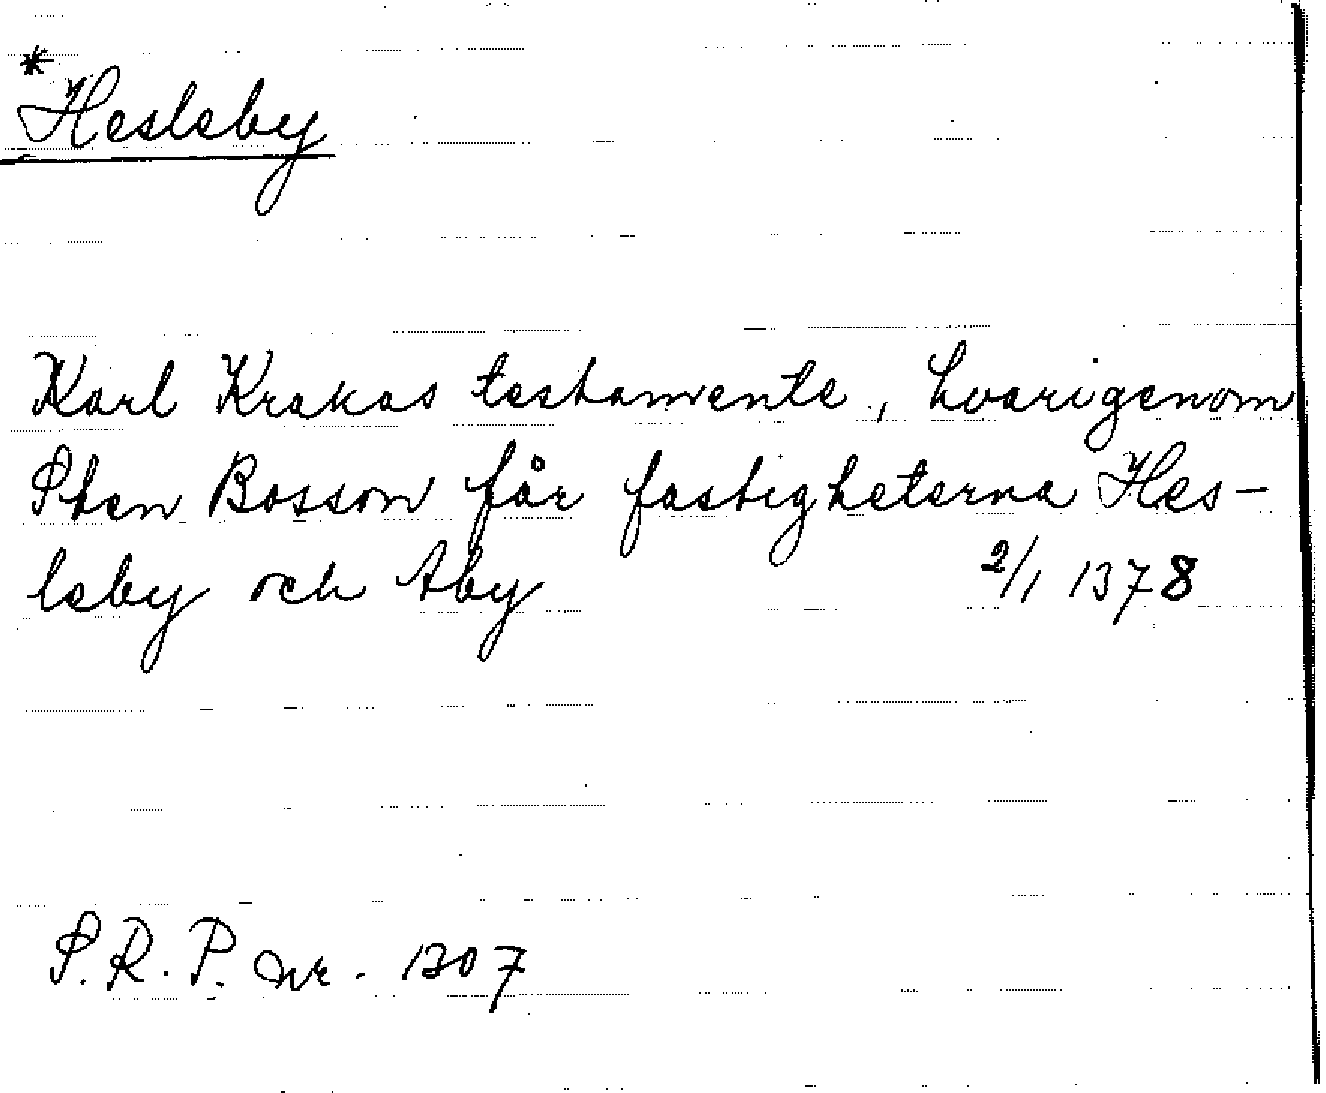 *
Heslsby
Karl Krakas testamente, hvarigenom
Sten Bosson får fastigheterna Hes-
lsby och Aby 2/1 1378
S.R.P. nr. 1307